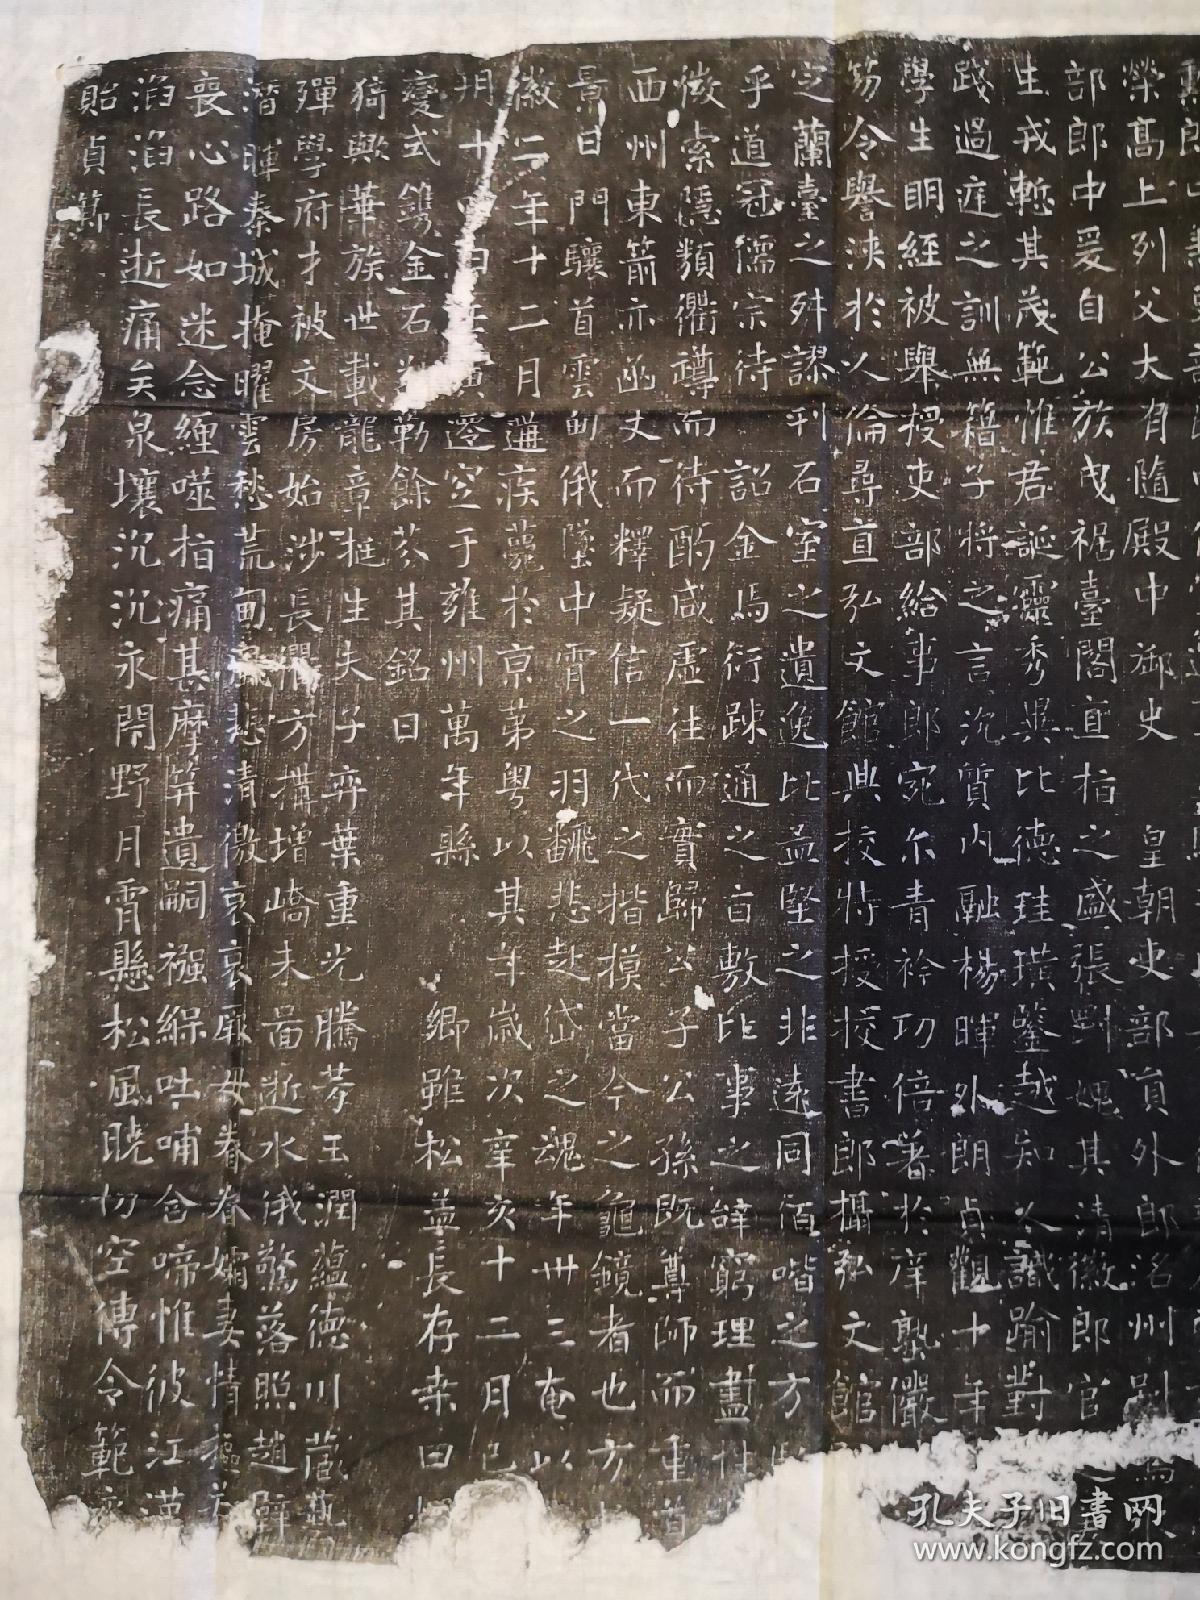 榮高上列父大有隨殿中御史　皇朝吏部員外郎洺州刺
部郎中爰自公族曳裾臺閣直指之盛張劉媿其清徽郎官
生戎慙其茂範惟君誕靈秀異比德珪璜鑒越知人識踰對
踐過庭之訓無籍子將之言沉質內融楊暉外朗貞觀十年
學生明經被舉授吏部給事郎宛尒青衿功倍著於庠塾儼
笏令譽浹於人倫尋直弘文館典校特授校書郎攝弘文館
定蘭臺之舛謬刊石室之遺逸比孟堅之非遠同伯喈之方
乎道冠儒宗待詔金馬衍踈通之旨敷比事之辭窮理盡性
微索隱類衢罇而待酌咸虛往而實歸公子公孫既尊師而重
西州東箭亦函丈而釋疑信一代之揩摸當今之龜鏡者也方
景日門驤首雲甸俄墜中霄之羽翮悲赴岱之魂年卅三奄以
徽二年十二月遘疾薨於京第粵以其年歲次辛亥十二月己
朔十日寅遷窆于雍州萬年縣　鄉雖松孟長存桒田
變式鐫金石勒餘芬其銘曰
猗歟華族世載龍章挺生夫子弈葉重光騰芳玉潤蘊德川藏
殫學府才被文房始涉長瀾方搆增嶠未啚逝水俄驚落照趙
潛暉秦城掩曜雲愁荒甸悲清徼哀哀厥母眷眷孀妻情
喪心路如迷念纏噬指痛甚摩笄遺嗣襁緥吐哺含啼惟彼江漢
滔滔長逝痛矣泉壤沉沉永閇野月霄懸松風曉切空傳令範
貽貞節
孔夫子旧書网
www.kongfz.com